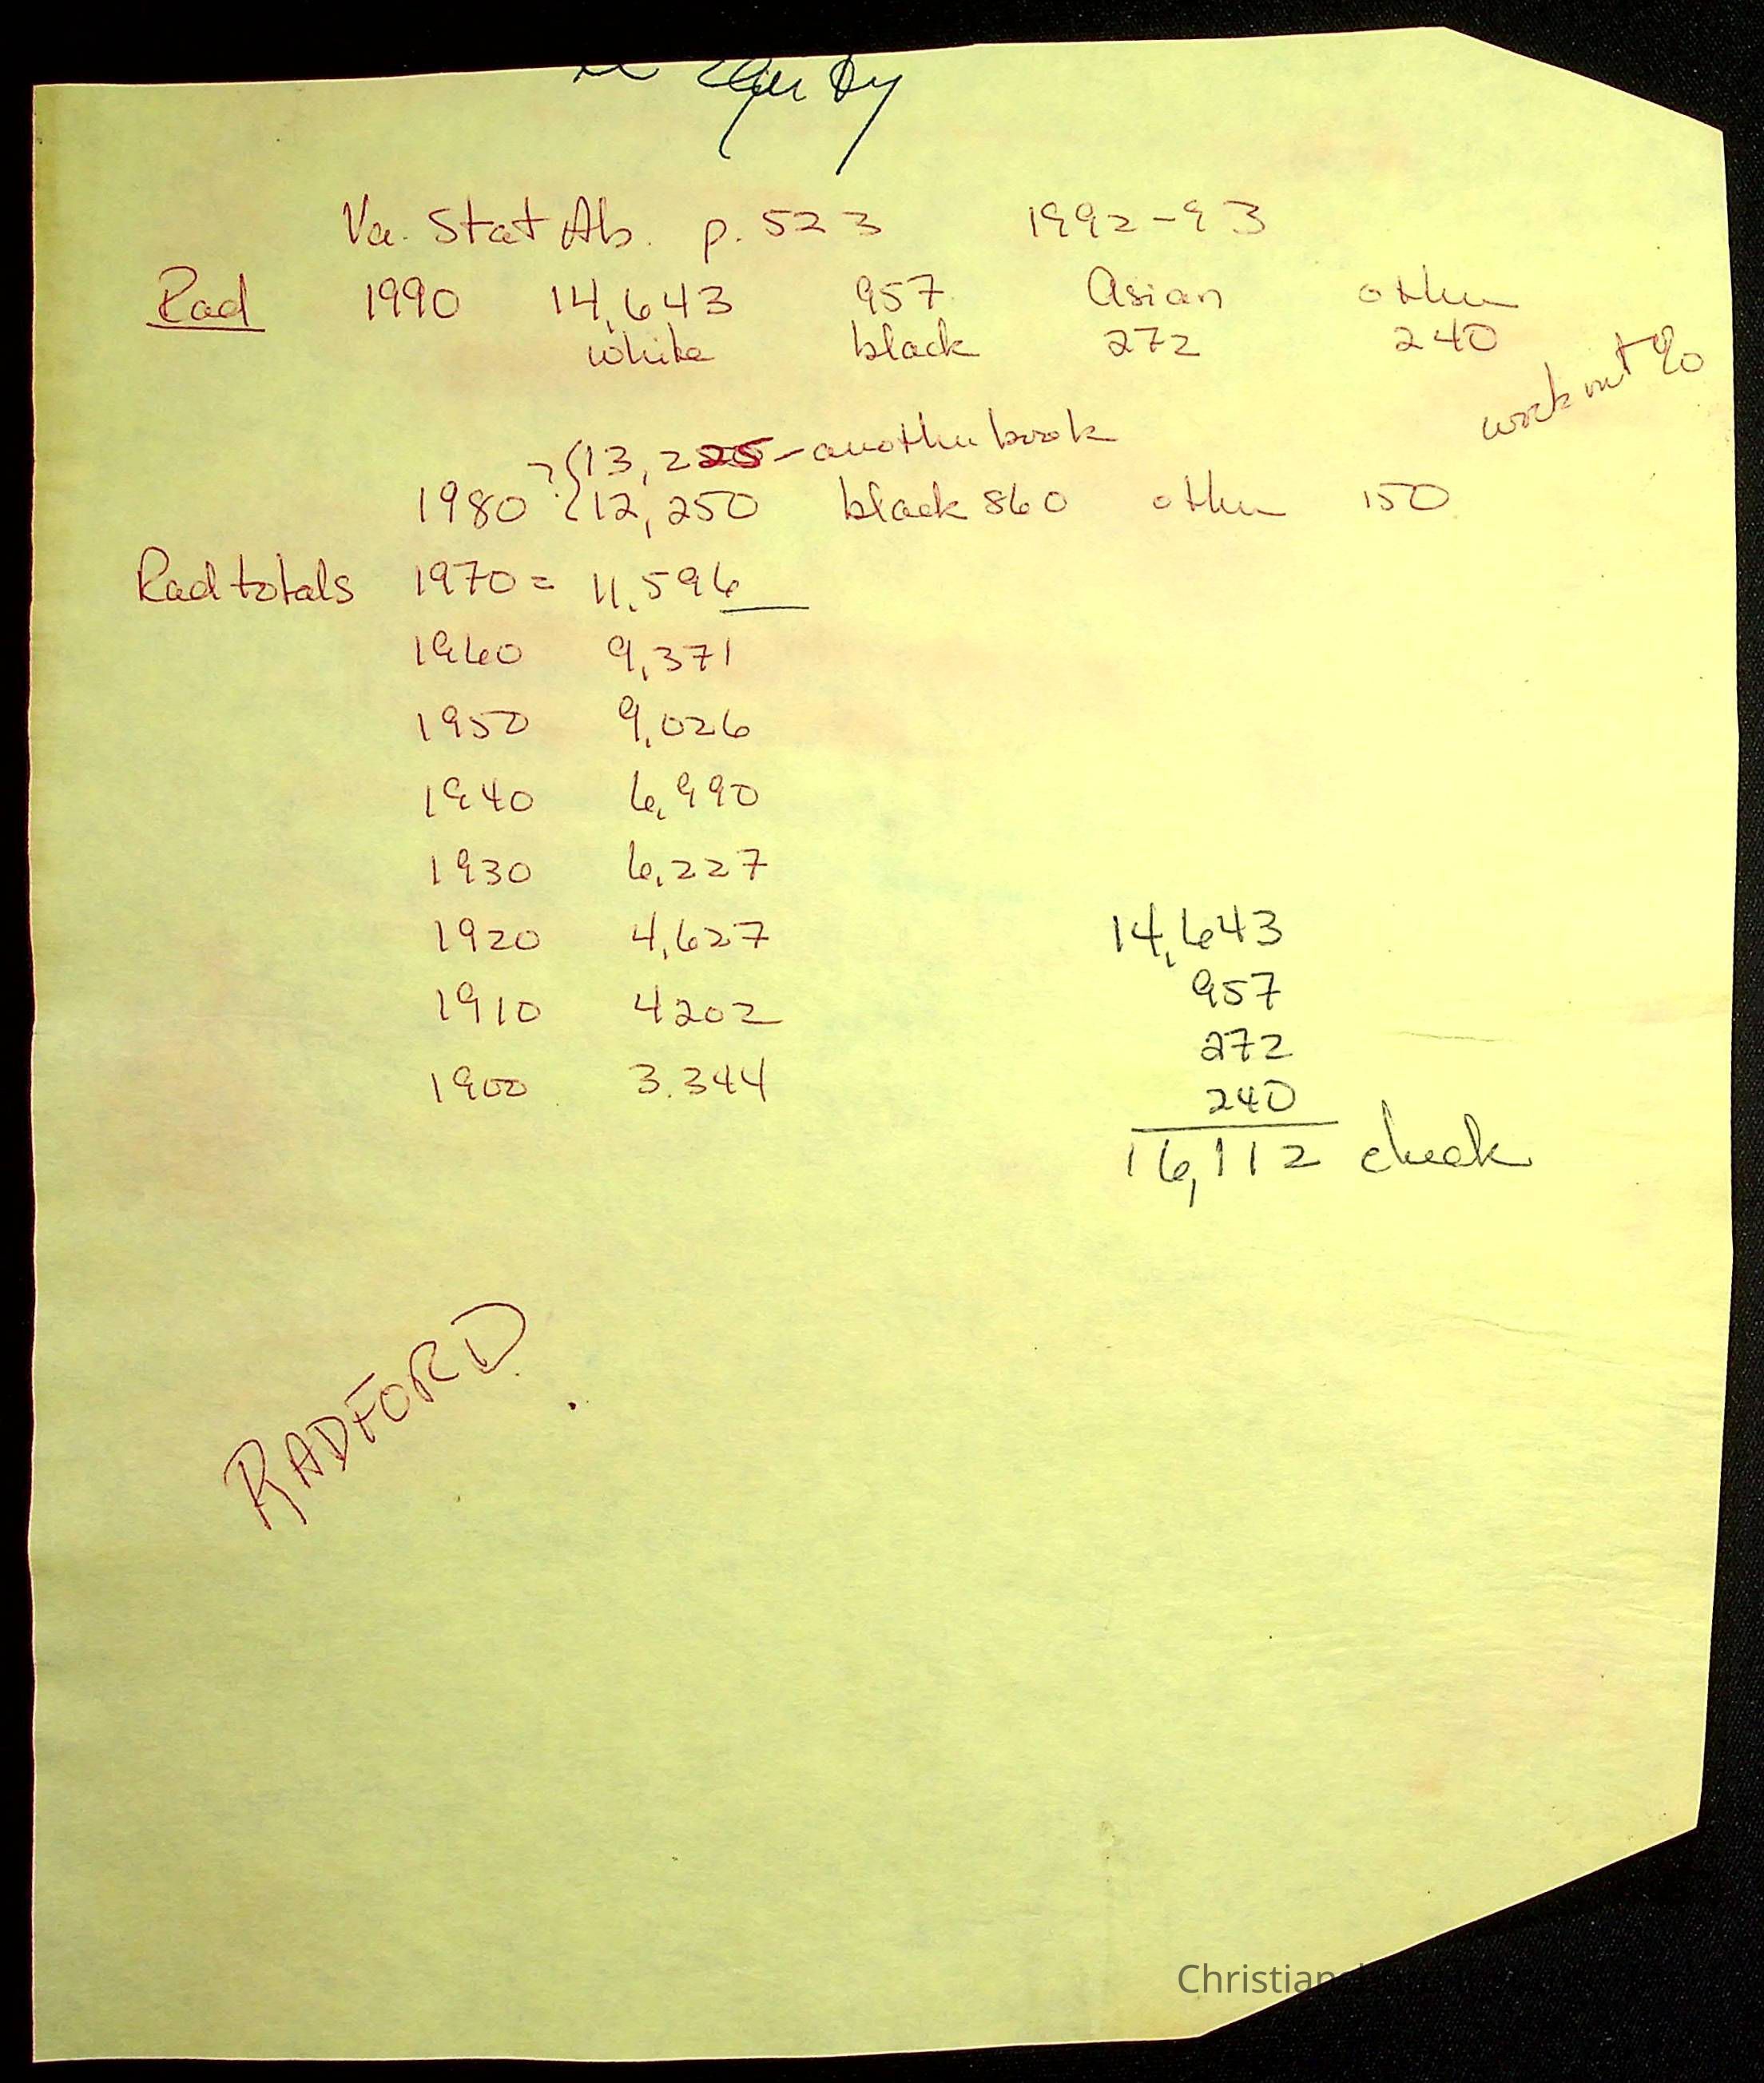 Va. Stat Ab. p. 523 1992-93
Rad 1990 14,643 957 Asian other
white black 272 240
work out %
?{13,225 - another book
1980 {12,250 black 860 other 150
Rad totals 1970 = 11,596
1960 9,371
1950 9,026
1940 6,990
1930 6,227
1920 4,627
1910 4202
1900 3.344
14,643
957
272
240
16,112 check
RADFORD